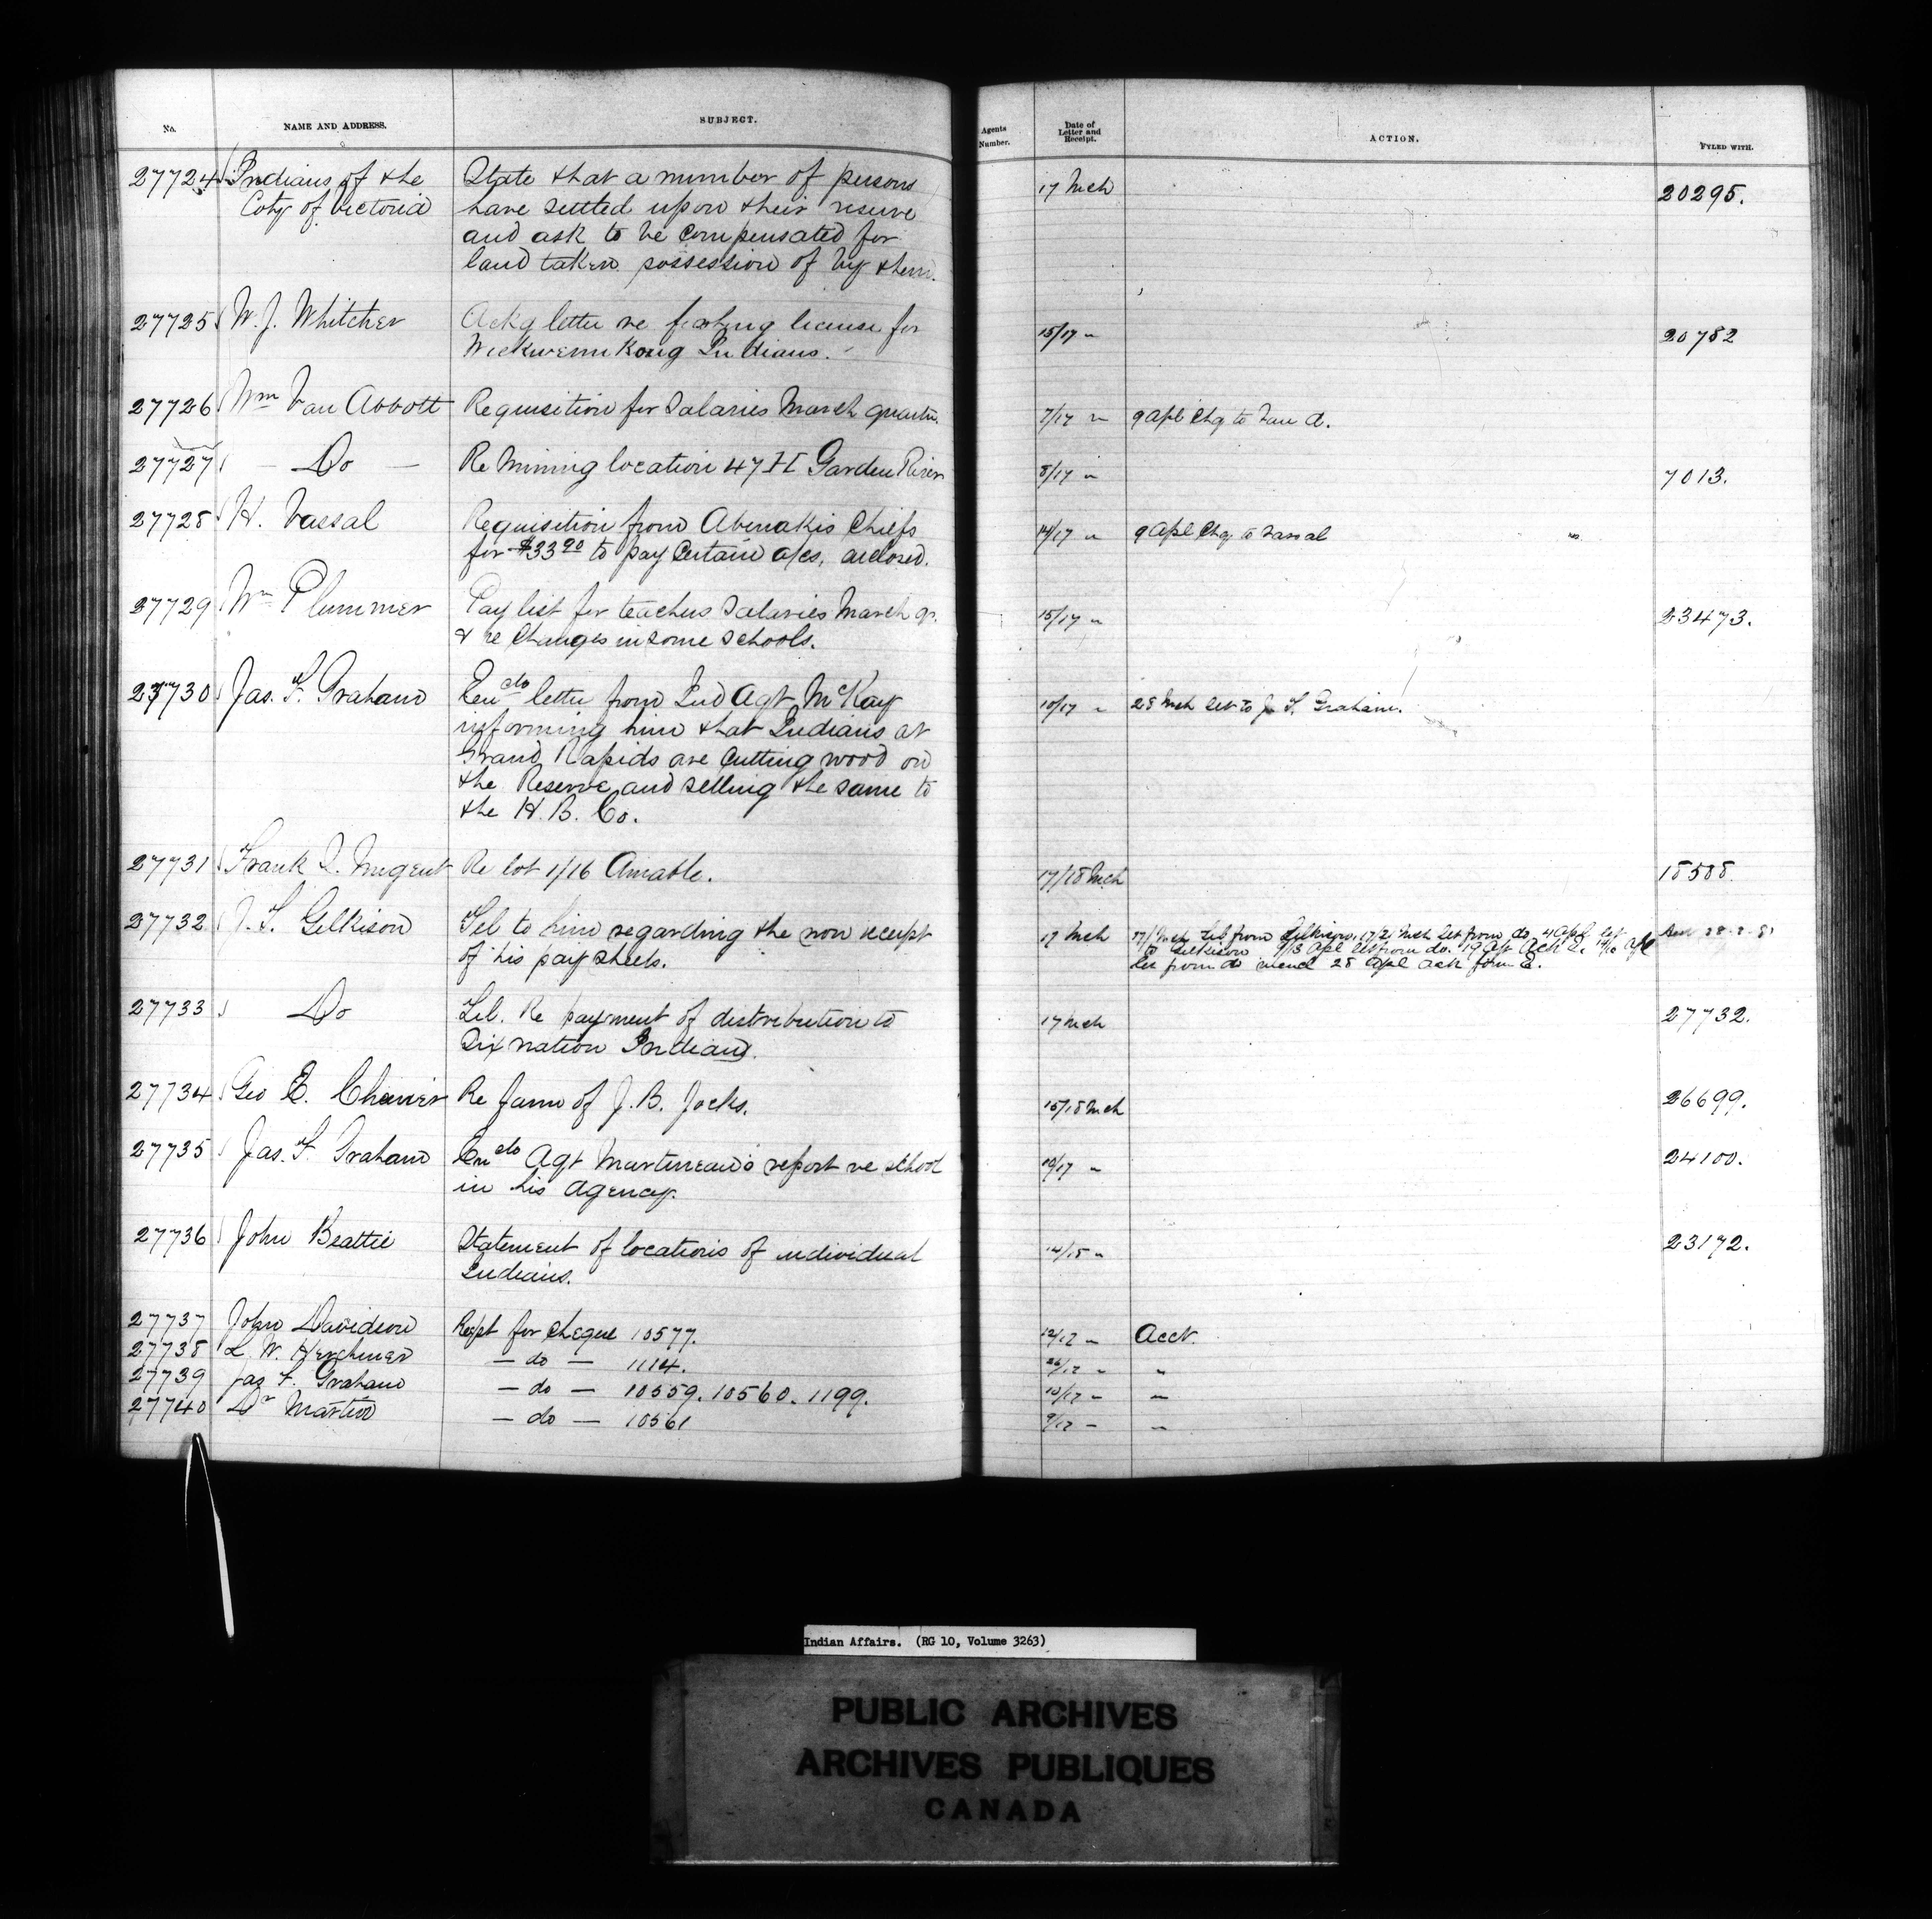 No. NAME AND ADDRESS. SUBJECT. Agents Number. Date of Letter and Receipt. ACTION. FYLED WITH.
27724 Indians of the State that a number of persons 17 Mch 20295.
Coty of Victoria have settled upon their reserve
and ask to be compensated for
land taken possession of by them.
27725 W. J. Whitcher Ackg letter re fishing license for 15/17 " 20782
Wickwemikong Indians.
27726 Wm Van Abbott Requisition for Salaries March quarter. 7/17 " 9 Apl Chq to Van A.
27727 — Do — Re Mining location 47 H Garden River 8/17 " 7013.
27728 H. Vassal Requisition from Abenakis Chiefs 14/17 " 9 Apl Chq to Vassal
for $33.20 to pay Certain a/cs, enclosed.
27729 Wm Plummer Pay list for teachers Salaries March qr. 15/17 " 23473.
& re Changes in some Schools.
27730 Jas. F. Graham Encdo letter from Ind Agt McKay 10/17 " 28 Mch let to J. F. Graham.
informing him that Indians at
Grand Rapids are Cutting wood on
the Reserve and selling the same to
the H. B. Co.
27731 Frank J. Nugent Re lot 1/16 Amable. 17/18 Mch 18588.
27732 J. T. Gilkison Tel to him regarding the non receipt 17 Mch 17/ Mch Tel from Gilkison, 17/21 Mch let from do. 4 Apl let
of his pay Sheets. to Gilkison 9/13 Apl let from do. 19 Ap Ack E.
let from do 28 Apl ack form E.
27733 Do Tel. Re payment of distribution to 17 Mch 27732.
Six nation Indians.
27734 Geo E. Cherrier Re farm of J. B. Jocks. 15/18 Mch 26699.
27735 Jas. F. Graham Encdo Agt Martineau's report re school 10/17 " 24100.
in his agency.
27736 John Beattie Statement of locations of individual 14/18 " 23172.
Indians.
27737 John Davidson Recpt for Cheque 10577. 12/17 " Acct.
27738 L. W. Herchmer — do — 1114. 26/17 " "
27739 Jas F. Graham — do — 10559. 10560. 1199. 10/17 " "
27740 Dr Martin — do — 10561 9/17 " "
Indian Affairs. (RG 10, Volume 3263)
PUBLIC ARCHIVES
ARCHIVES PUBLIQUES
CANADA